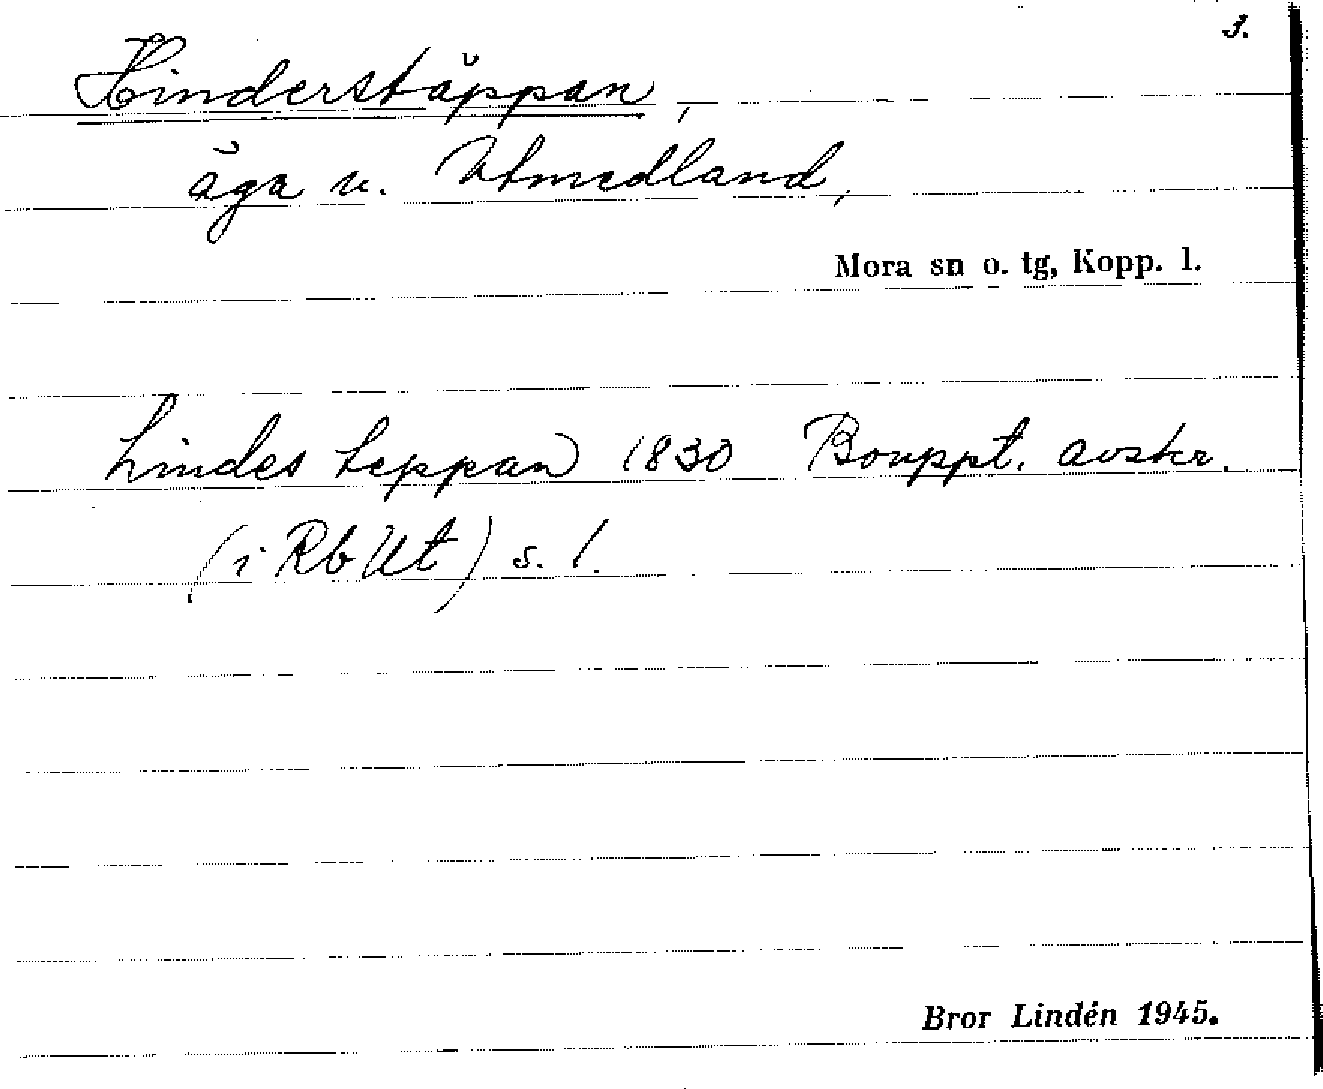 3.
Hinderstäppan,
äga v. Utmedland,
Mora sn o. tg, Kopp. l.
Lindes teppan 1830 Bouppt. avskr.
(i Rb Ut) s. 1.
Bror Lindén 1945.